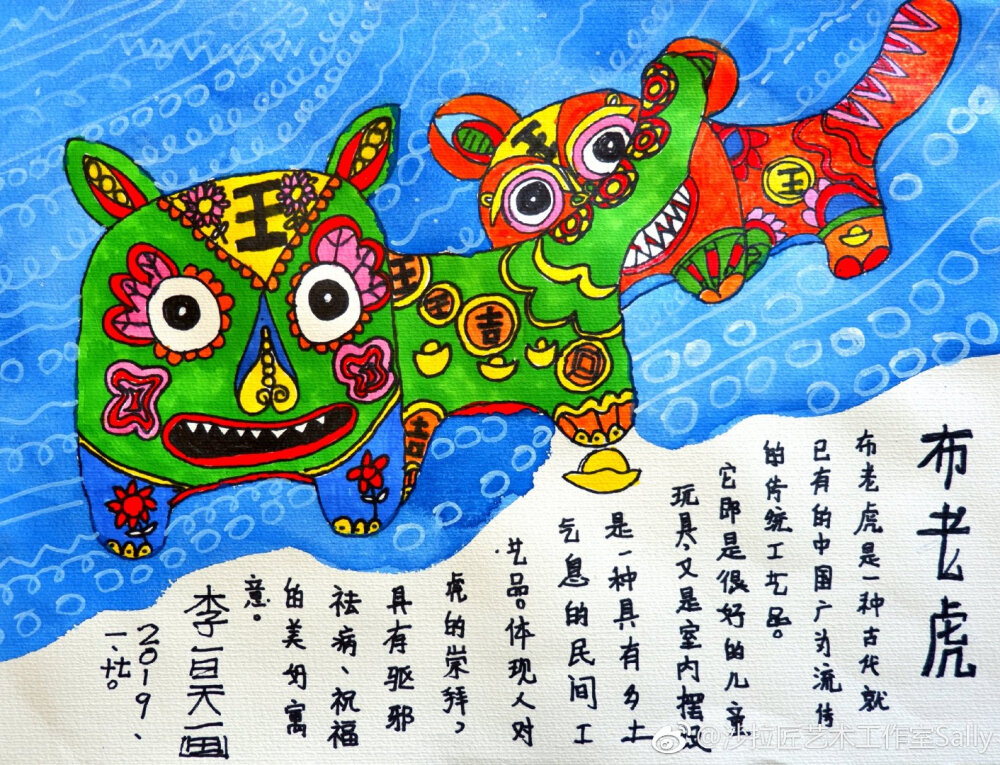 布老虎
布老虎是一种古代就
已有的中国广为流传
的传统工艺品。
它即是很好的儿童
玩具、又是室内摆设
是一种具有乡土
气息的民间工
艺品。体现人对
虎的崇拜,
具有驱邪
祛病、祝福
的美好寓
意。
2019、
一、廿。
王
王
王
王
王
吉
吉
@沙拉匠艺术工作室Sally